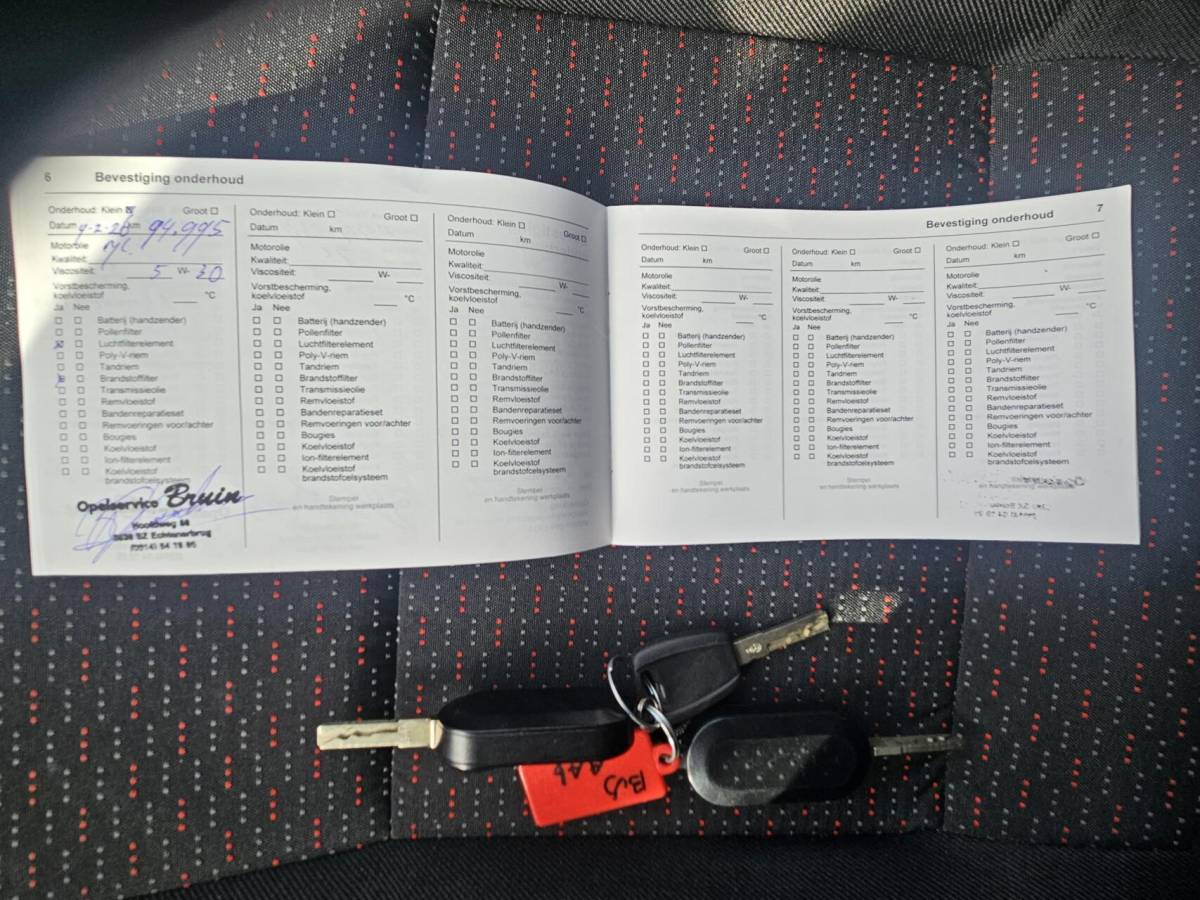 6 Bevestiging onderhoud
Onderhoud: Klein Groot
Datum 9-2-26 km 94.995
Motorolie
Kwaliteit:
Viscositeit: 5 W- 30
Vorstbescherming,
koelvloeistof °C
Ja Nee
Batterij (handzender)
Pollenfilter
Luchtfilterelement
Poly-V-riem
Tandriem
Brandstoffilter
Transmissieolie
Remvloeistof
Bandenreparatieset
Remvoeringen voor/achter
Bougies
Koelvloeistof
Ion-filterelement
Koelvloeistof
brandstofcelsysteem
Opelservice Bruin
(0514) 54 18 85
Onderhoud: Klein Groot
Datum km
Motorolie
Kwaliteit:
Viscositeit: W-
Vorstbescherming,
koelvloeistof °C
Ja Nee
Batterij (handzender)
Pollenfilter
Luchtfilterelement
Poly-V-riem
Tandriem
Brandstoffilter
Transmissieolie
Remvloeistof
Bandenreparatieset
Remvoeringen voor/achter
Bougies
Koelvloeistof
Ion-filterelement
Koelvloeistof
brandstofcelsysteem
Stempel
en handtekening werkplaats
Onderhoud: Klein Groot
Datum km
Motorolie
Kwaliteit:
Viscositeit: W-
Vorstbescherming,
koelvloeistof °C
Ja Nee
Batterij (handzender)
Pollenfilter
Luchtfilterelement
Poly-V-riem
Tandriem
Brandstoffilter
Transmissieolie
Remvloeistof
Bandenreparatieset
Remvoeringen voor/achter
Bougies
Koelvloeistof
Ion-filterelement
Koelvloeistof
brandstofcelsysteem
Stempel
en handtekening werkplaats
Bevestiging onderhoud 7
Onderhoud: Klein Groot
Datum km
Motorolie
Kwaliteit:
Viscositeit: W-
Vorstbescherming,
koelvloeistof °C
Ja Nee
Batterij (handzender)
Pollenfilter
Luchtfilterelement
Poly-V-riem
Tandriem
Brandstoffilter
Transmissieolie
Remvloeistof
Bandenreparatieset
Remvoeringen voor/achter
Bougies
Koelvloeistof
Ion-filterelement
Koelvloeistof
brandstofcelsysteem
Stempel
en handtekening werkplaats
Onderhoud: Klein Groot
Datum km
Motorolie
Kwaliteit:
Viscositeit: W-
Vorstbescherming,
koelvloeistof °C
Ja Nee
Batterij (handzender)
Pollenfilter
Luchtfilterelement
Poly-V-riem
Tandriem
Brandstoffilter
Transmissieolie
Remvloeistof
Bandenreparatieset
Remvoeringen voor/achter
Bougies
Koelvloeistof
Ion-filterelement
Koelvloeistof
brandstofcelsysteem
Stempel
en handtekening werkplaats
Onderhoud: Klein Groot
Datum km
Motorolie
Kwaliteit:
Viscositeit: W-
Vorstbescherming,
koelvloeistof °C
Ja Nee
Batterij (handzender)
Pollenfilter
Luchtfilterelement
Poly-V-riem
Tandriem
Brandstoffilter
Transmissieolie
Remvloeistof
Bandenreparatieset
Remvoeringen voor/achter
Bougies
Koelvloeistof
Ion-filterelement
Koelvloeistof
brandstofcelsysteem
en handtekening werkplaats
Bus